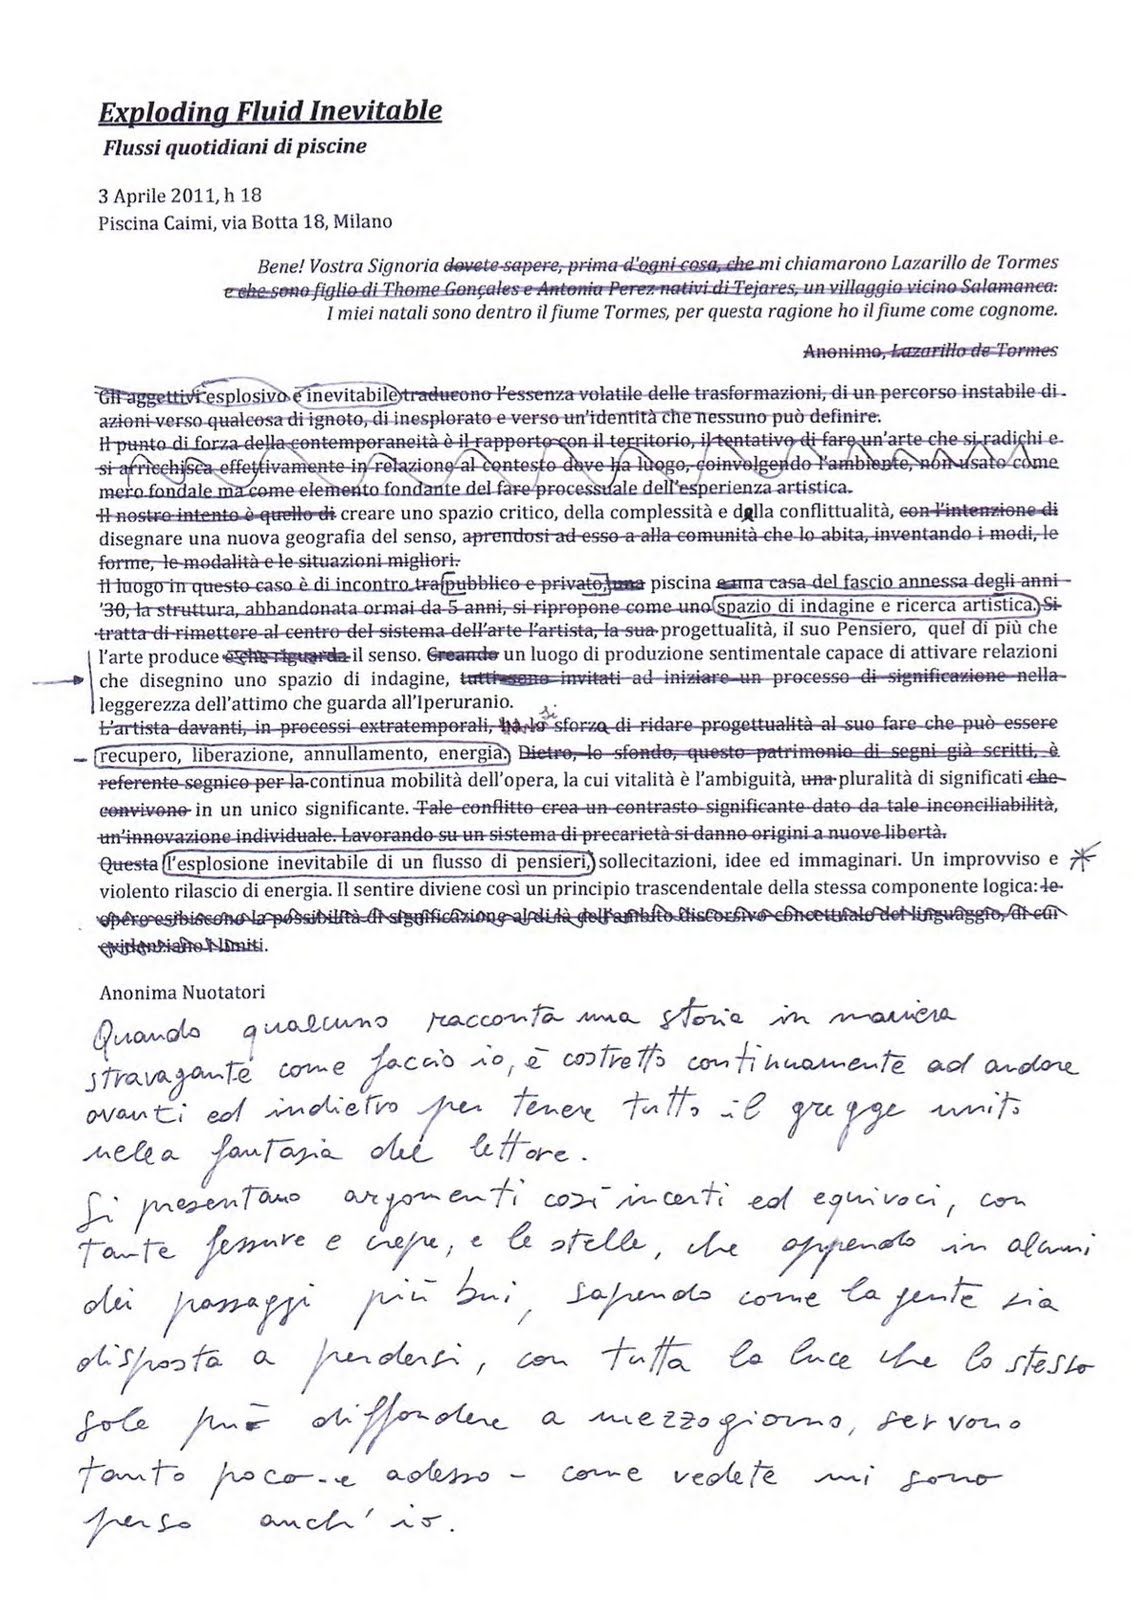 Exploding Fluid Inevitable
Flussi quotidiani di piscine
3 Aprile 2011, h 18
Piscina Caimi, via Botta 18, Milano
Bene! Vostra Signoria dovete sapere, prima d'ogni cosa, che mi chiamarono Lazarillo de Tormes
e che sono figlio di Thome Gonçales e Antonia Perez nativi di Tejares, un villaggio vicino Salamanca.
I miei natali sono dentro il fiume Tormes, per questa ragione ho il fiume come cognome.
Anonimo, Lazarillo de Tormes
Gli aggettivi esplosivo e inevitabile traducono l'essenza volatile delle trasformazioni, di un percorso instabile di
azioni verso qualcosa di ignoto, di inesplorato e verso un'identità che nessuno può definire.
Il punto di forza della contemporaneità è il rapporto con il territorio, il tentativo di fare un'arte che si radichi e
si arricchisca effettivamente in relazione al contesto dove ha luogo, coinvolgendo l'ambiente, non usato come
mero fondale ma come elemento fondante del fare processuale dell'esperienza artistica.
Il nostro intento è quello di creare uno spazio critico, della complessità e della conflittualità, con l'intenzione di
disegnare una nuova geografia del senso, aprendosi ad esso a alla comunità che lo abita, inventando i modi, le
forme, le modalità e le situazioni migliori.
Il luogo in questo caso è di incontro tra pubblico e privato, una piscina e una casa del fascio annessa degli anni
'30, la struttura, abbandonata ormai da 5 anni, si ripropone come uno spazio di indagine e ricerca artistica. Si
tratta di rimettere al centro del sistema dell'arte l'artista, la sua progettualità, il suo Pensiero, quel di più che
l'arte produce e che riguarda il senso. Creando un luogo di produzione sentimentale capace di attivare relazioni
che disegnino uno spazio di indagine, tutti sono invitati ad iniziare un processo di significazione nella
leggerezza dell'attimo che guarda all'Iperuranio.
si
L'artista davanti, in processi extratemporali, ha lo sforzo di ridare progettualità al suo fare che può essere
recupero, liberazione, annullamento, energia. Dietro, lo sfondo, questo patrimonio di segni già scritti, è
referente segnico per la continua mobilità dell'opera, la cui vitalità è l'ambiguità, una pluralità di significati che
convivono in un unico significante. Tale conflitto crea un contrasto significante dato da tale inconciliabilità,
un'innovazione individuale. Lavorando su un sistema di precarietà si danno origini a nuove libertà.
Questa l'esplosione inevitabile di un flusso di pensieri, sollecitazioni, idee ed immaginari. Un improvviso e
violento rilascio di energia. Il sentire diviene così un principio trascendentale della stessa componente logica: le
opere esibiscono la possibilità di significazione al di là dell'ambito discorsivo concettuale del linguaggio, di cui
evidenziano i limiti.
Anonima Nuotatori
Quando qualcuno racconta una storia in maniera
stravagante come faccio io, è costretto continuamente ad andare
avanti ed indietro per tenere tutto il gregge unito
nella fantasia del lettore.
Si presentano argomenti così incerti ed equivoci, con
tante fessure e crepe, e le stelle, che appendo in alcuni
dei passaggi più bui, sapendo come la gente sia
disposta a perdersi, con tutta la luce che lo stesso
sole può diffondere a mezzogiorno, servono
tanto poco - e adesso - come vedete mi sono
perso anch' io.